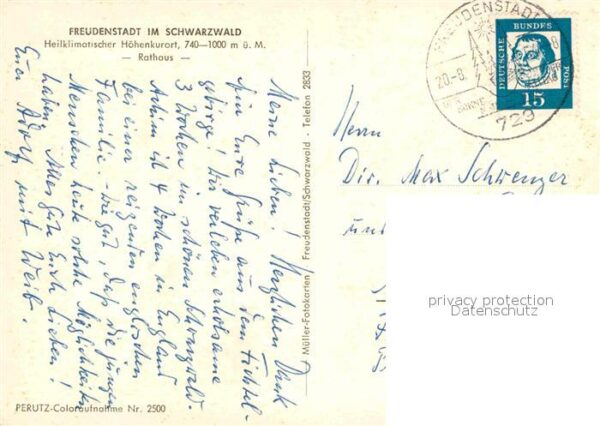 FREUDENSTADT IM SCHWARZWALD
Heilklimatischer Höhenkurort, 740—1000 m ü. M.
— Rathaus —
Meine Lieben! Herzlichen Dank
für Eure Grüße aus dem Fichtel-
gebirge! Wir verleben erholsame
3 Wochen im schönen Schwarzwald.
Achim ist 4 Wochen in England
bei einer reizenden englischen
Familie. - Wie gut, daß die jungen
Menschen heute solche Möglichkeiten
haben. Alles Gute Euch Lieben!
Euer Adolf mit Weib.
PERUTZ-Coloraufnahme Nr. 2500
Müller-Fotokarten Freudenstadt/Schwarzwald Telefon 2833
FREUDENSTADT
20-8.
729
DEUTSCHE BUNDES POST
15
Herrn
Dir. Max Schwenzer
und
privacy protection
Datenschutz